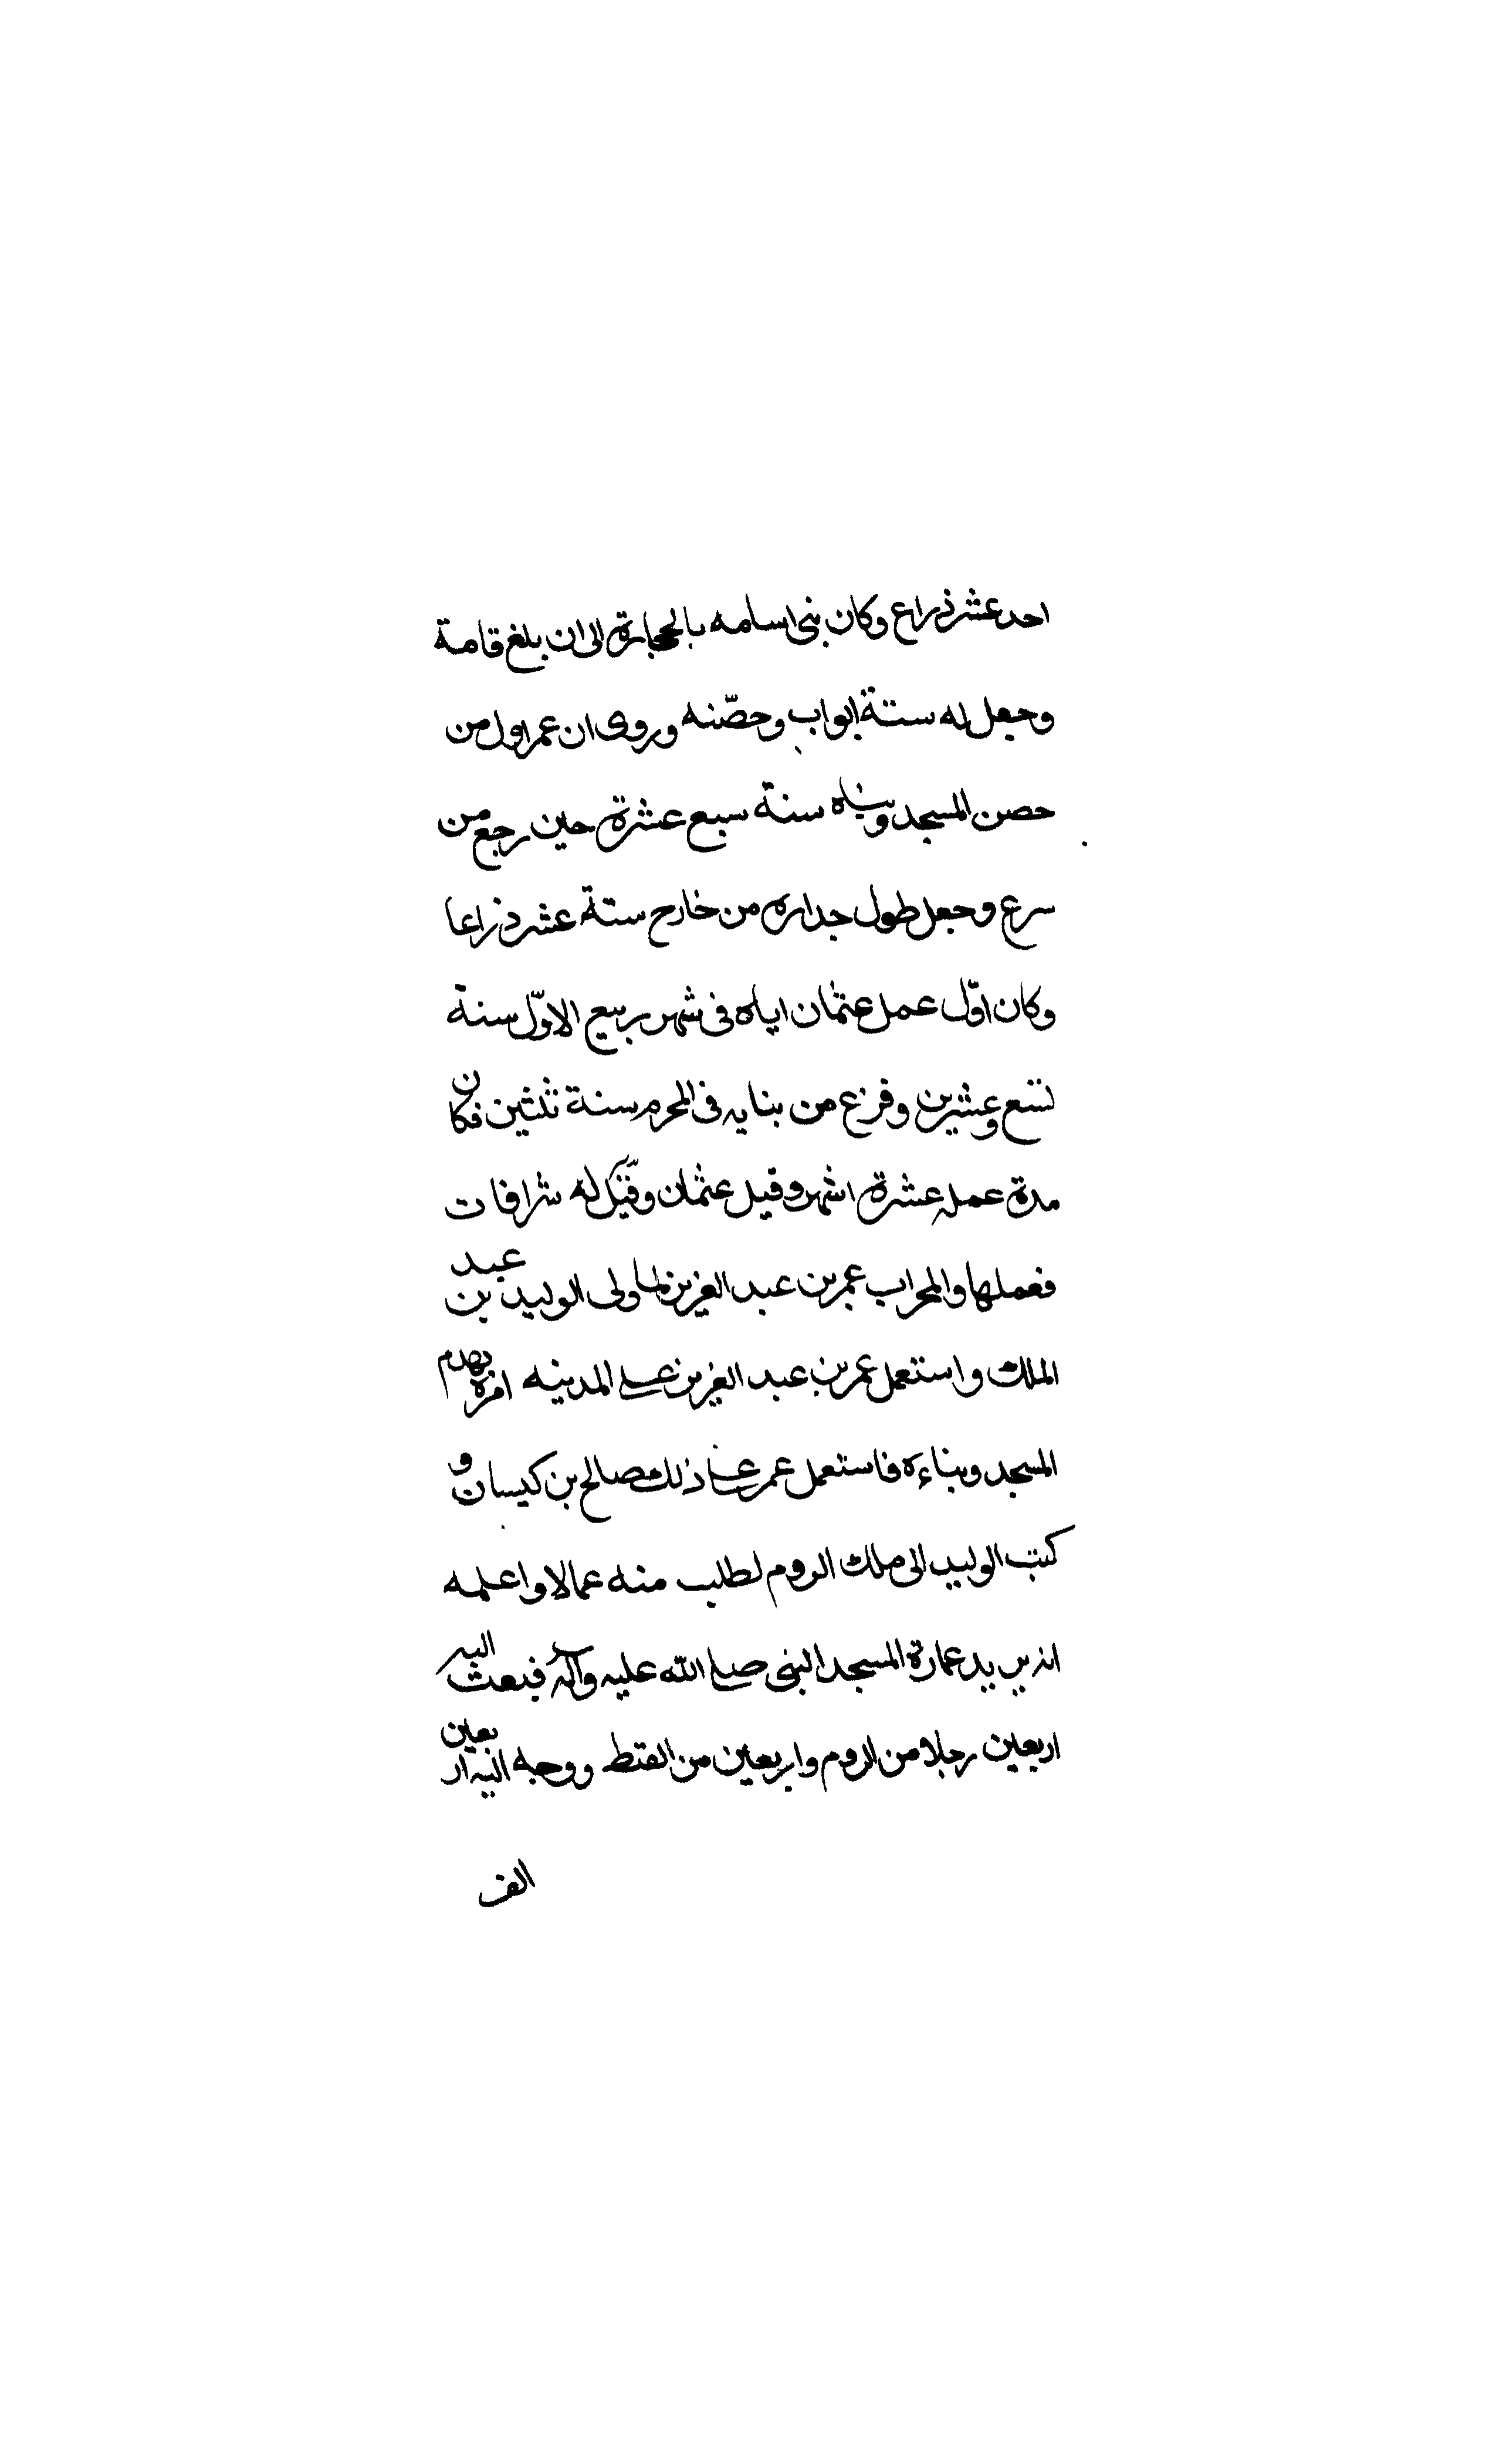 احد عشر ذراع وكان بنى اسامه بالحجارة الى ان بلغ قامة
وجعل له ستة ابواب وحصّنه وروى ان عمر اول من
حصن المسجد وبناه سنة سبع عشرة حين رجع من
سرع وجعل طول جداره من خارج ستة عشر ذراعا
وكان اوّل عمل عثمان اياه فى شهر ربيع الاوّل سنة
تسع وعشرين وفرغ من بنايه فى المحرم سنة ثلثين فكان
مدة عمله عشرة اشهر وقيل عثمان وقُتِل له شرافات
فعملها والمحراب عمر بن عبد العزيز لما ولى الوليد بن عبد
الملك واستعمل عمر بن عبد العزيز على المدينه امره بهدم
المسجد وبناءه فاستعمل عمر على ذلك صالح بن كيسان و
كتب الوليد الى ملك الروم لطلب منه عمالا واعلمه
انه يريد عمارة المسجد النبى صلى الله عليه وآله فبعث اليه
اربعين رجلا من الروم واربعين من القبط ووجه اليه اربعين
الف